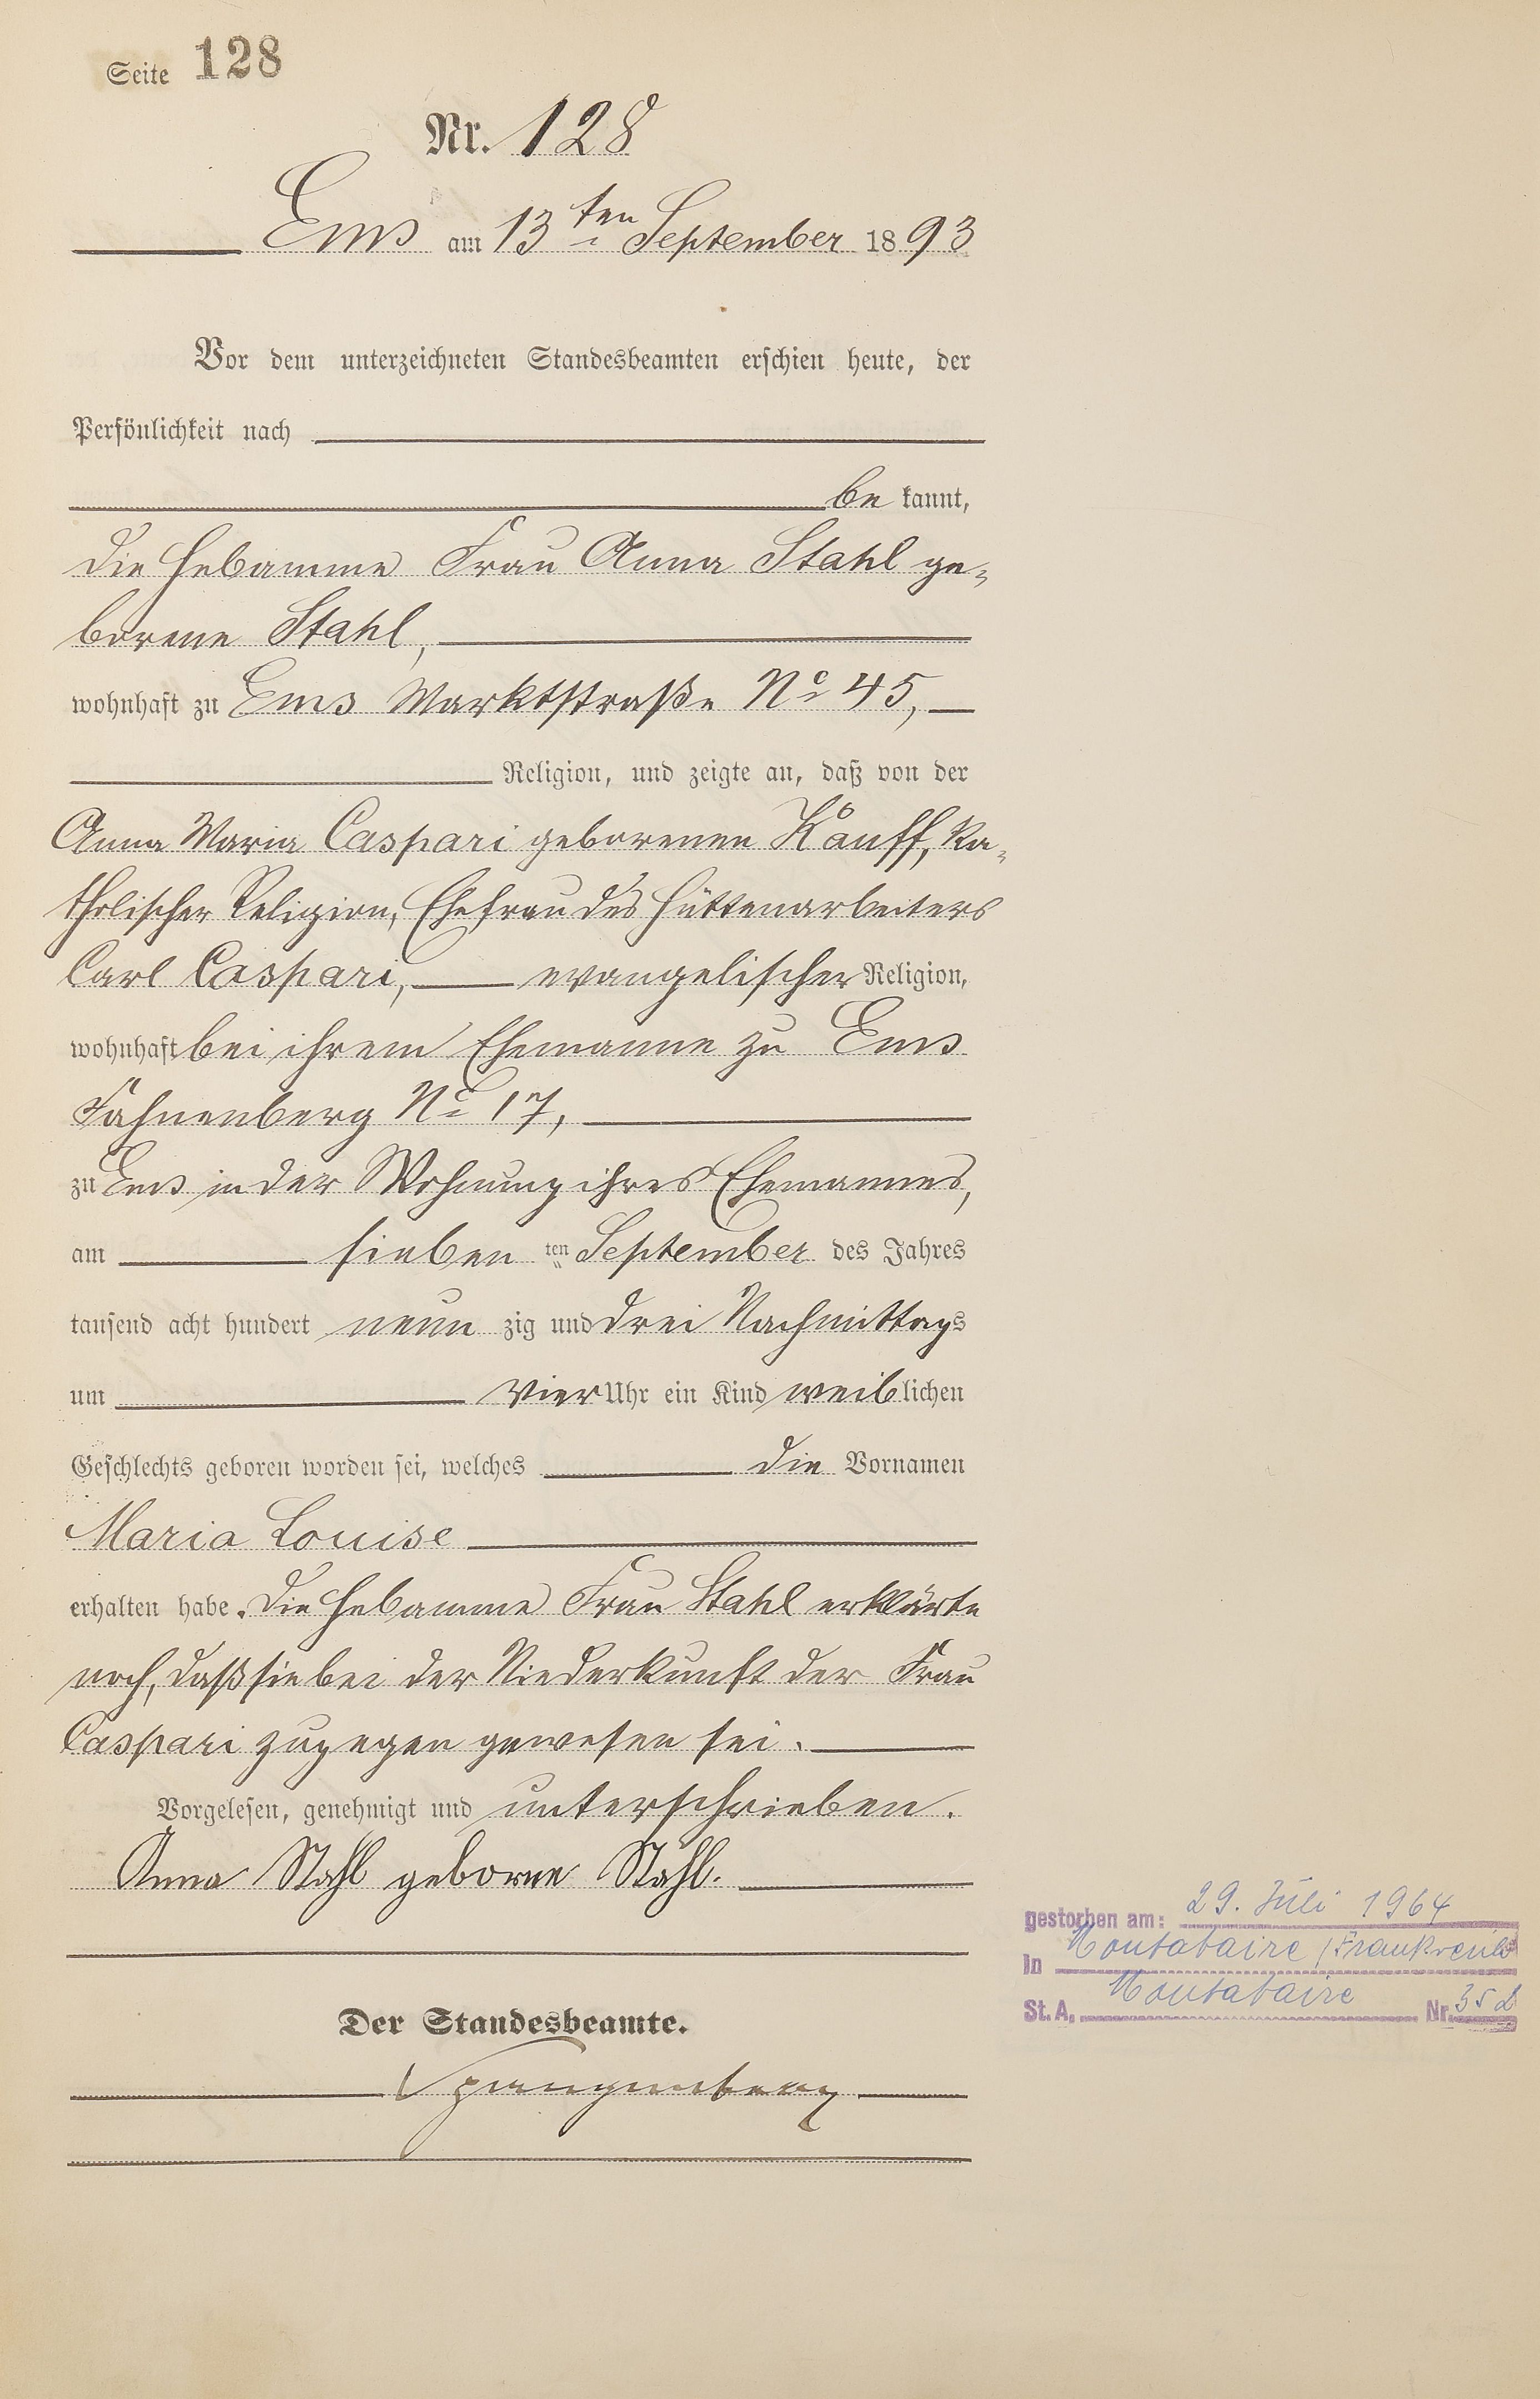 Seite 128
Nr. 128
Ems am 13ten September 1893
Vor dem unterzeichneten Standesbeamten erschien heute, der
Persönlichkeit nach
be kannt,
die Hebamme Frau Anna Stahl ge-
borene Stahl,
wohnhaft zu Ems Marktstraße No 45,
Religion, und zeigte an, daß von der
Anna Maria Caspari geborenen Kauff, ka-
tholischer Religion, Ehefrau des Hüttenarbeiters
Carl Caspari, evangelischer Religion,
wohnhaft bei ihrem Ehemanne zu Ems
Fahnenberg No 17,
zu Ems in der Wohnung ihres Ehemannes,
am sieben ten September des Jahres
tausend acht hundert neun zig und drei Nachmittags
um vier Uhr ein Kind weiblichen
Geschlechts geboren worden sei, welches die Vornamen
Maria Louise
erhalten habe. Die Hebamme Frau Stahl erklärte
noch, daß sie bei der Niederkunft der Frau
Caspari zugegen gewesen sei.
Vorgelesen, genehmigt und unterschrieben.
Anna Stahl geborne Stahl.
gestorben am: 29. Juli 1964
in Montataire (Frankreich)
St. A. Montataire Nr.
Der Standesbeamte.
Spangenberg